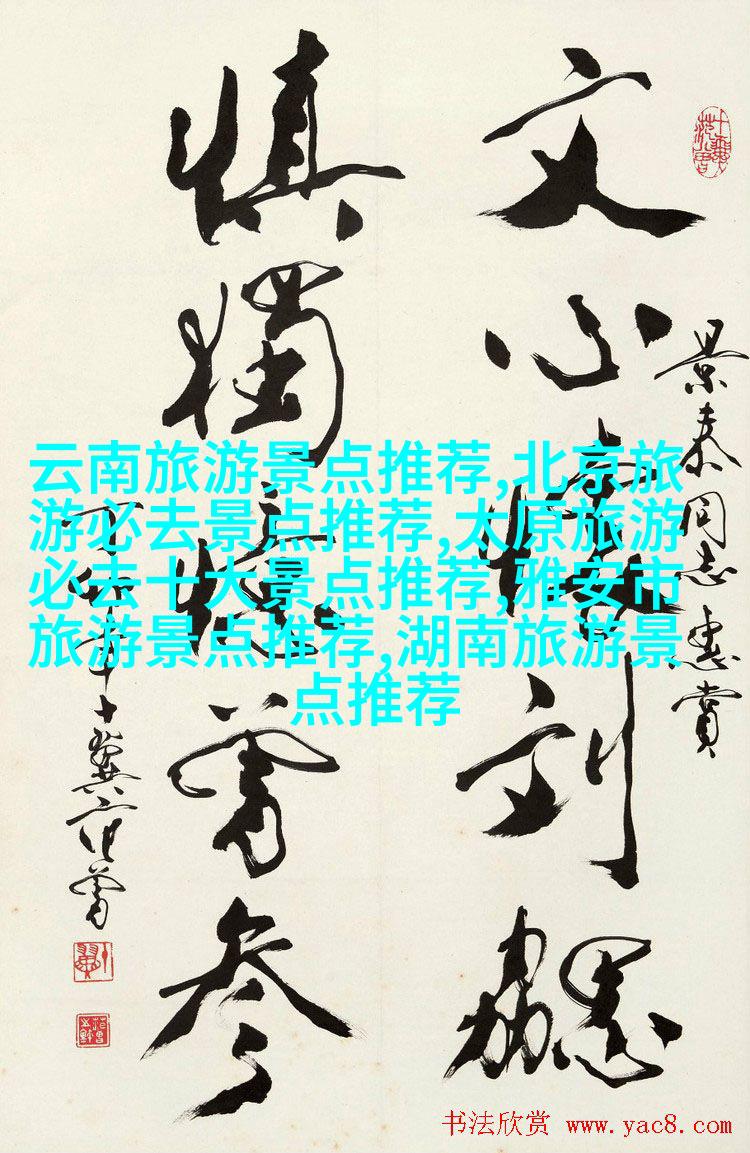 景泰同志惠賞
文心懷刘勰
慎獨憶曾參
十翼范曾
云南旅游景点推荐,北京旅
游必去景点推荐,太原旅游
必去十大景点推荐,雅安市
旅游景点推荐,湖南旅游景
点推荐
书法欣赏 www.yac8.com